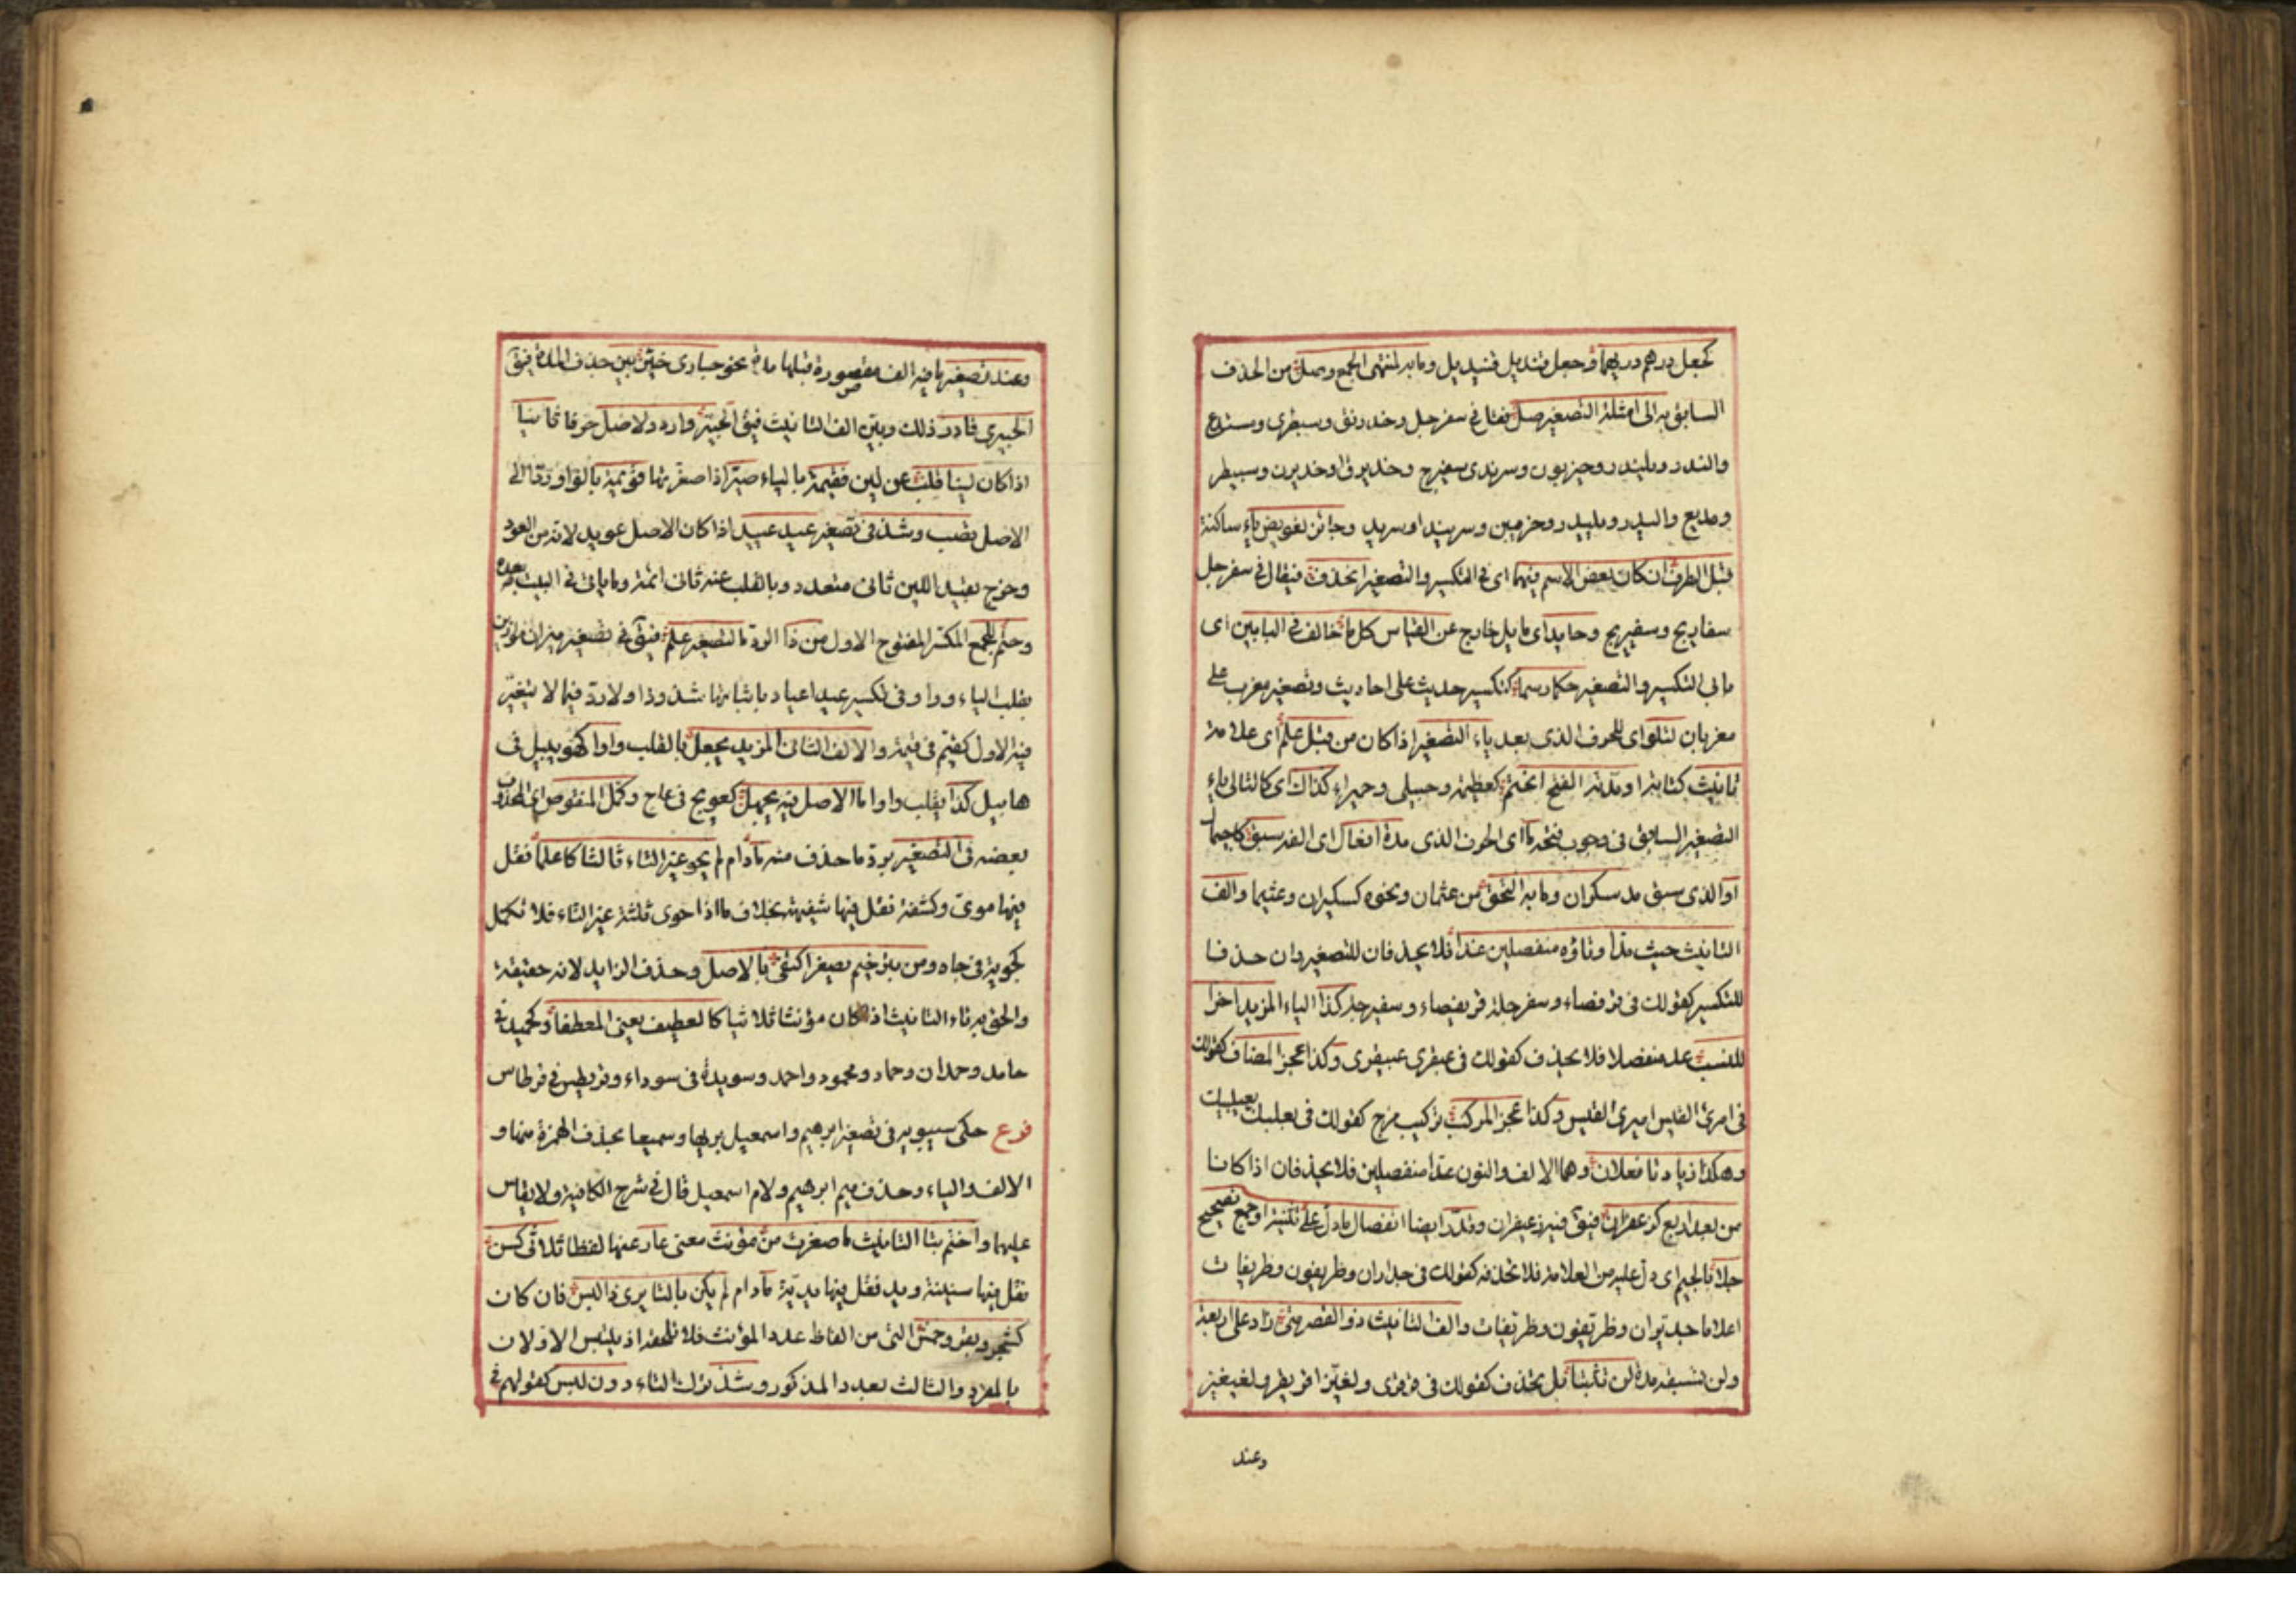 كجعل درهم دريهما وجعل قنديل قنيديل وما به لمنتهى الجمع وصل من الحذف
السابق به الى امثلة التصغير صل فقل فى سفرجل وخدرنق وسبطرى ومستدع
والندد ويلندد وحيزبون وسرندى سفيرج وخديرق او خديرن وسبيطر
ومديع واليدد ويليدد وحزيبين وسريند او سريد وجائز تعويض ياء ساكنة
قبل الطرف ان كان بعض الاسم فيهما اى فى التكسير والتصغير انحذف فيقال فى سفرجل
سفاريج وسفيريج وحائد اى مايل خارج عن القياس كل ما خالف فى البابين اى
بابى التكسير والتصغير حكما رسما كتكسير حديث على احاديث وتصغير مغرب على
مغربان لتلو اى للحرف الذى بعد ياء التصغير اذا كان من قبل علم اى علامة
تانيث كتائه او مدته الفتح انحتم كعظيمة وحبيلى وحميراء كذاك اى كالتالى ياء
التصغير السابق فى وجوب فتحه ما اى الحرف الذى مدة افعال اى الفه سبق كاجيمال
او الذى سبق مد سكران وما به التحق من عثمان ونحوه كسكيران وعثيمان والف
التانيث حيث مدا وتاؤه منفصلين عدا فلا يحذفان للتصغير وان حذفا
للتكسير كقولك فى قرفصاء وسفرجلة قريفصاء وسفيرجلة كذا الياء المزيد اخرا
للنسب عد منفصلا فلا يحذف كقولك فى عبقرى عبيقرى وكذا عجز المضاف كقولك
فى امرئ القيس اميرئ القيس وكذا عجز المركب تركيب مزج كقولك فى بعلبك بعيلبك
وهكذا زيادتا فعلان وهما الالف والنون عدا منفصلين فلا يحذفان اذا كانا
من بعد اربع كزعفران فيق فيه زعيفران وقدر ايضا انفصال ما دل على تثنية او جمع تصحيح
جلا بالجيم اى دل عليه من العلامة فلا تحذفه كقولك فى جداران وظريفون وظريفات
اعلاما جديران وظريفون وظريفات والف التانيث ذو القصر متى زاد على اربعة
ولن تسبقه مدة لن تثبتا بل يحذف كقولك فى قرقرى ولغيزى قريقر ولغيغيز
وعند
وعند تصغير ما فيه الف مقصورة قبلها مدة نحو حبارى خير بين حذف المدة فيق
الحبيرى فادر ذلك وبين الف التانيث فيق الحبير واردد لاصل حرفا ثانيا
اذا كان لينا قلب عن لين فقيمة بالياء صير اذا صغرتها قويمة بالواو ردا الى
الاصل تصب وشذ فى تصغير عيد عييد اذا كان الاصل عويد لانه من العود
وخرج بقيد اللين ثانى متعدد وبالقلب عنه ثانى ائمة وما ياتى فى البيت بعده
وحتم للجمع المكسر المفتوح الاول من ذا الرد ما لتصغير علم فيق فى تصغير ميزان موازين
بقلب الياء واوا وفى تكسير عيد اعياد باثباتها شذوذا ولا رد فيما لا يتغير
فيه الاول كقيم فى قيمة والالف الثانى المزيد يجعل بالقلب واوا كهويبيل فى
هابيل كذا يقلب واوا ما الاصل فيه يجهل كعويج فى عاج وكمل المنقوص اى المحذوف
بعضه فى التصغير برد ما حذف منه مادام لم يحو غير التاء ثالثا كما علما فقل
فيها موى وكشفة تقل فيها شفيهة بخلاف ما اذا حوى ثلثة غير التاء فلا تكمل
كجويه فى جاه ومن بترخيم يصغر اكتفى بالاصل وحذف الزايد لانه حقيقة
والحق به تاء التانيث اذا كان مؤنثا ثلاثيا كالعطيف يعنى المعطفا وكحميد فى
حامد وحمدان وحماد ومحمود واحمد وسويدة فى سوداء وقريطس فى قرطاس
فرع حكى سيبويه فى تصغير ابرهيم واسمعيل بريها وسميعا بحذف الهمزة منهما و
الالف والياء وحذف ميم ابرهيم ولام اسمعيل قال فى شرح الكافية ولا يقاس
عليهما واختم بتا التانيث ما صغرت من مؤنث معنى عار عنها لفظا ثلاثى كسن
تقل فيها سنينة ويد فقل فيها يدية مادام لم يكن بالتا يرى ذا لبس فان كان
كشجر وبقر وخمس التى من الفاظ عدد المؤنث فلا تلحقه اذ يلتبس الاولان
بالمفرد والثالث بعدد المذكور وشذ ترك التاء دون لبس كقولهم فى